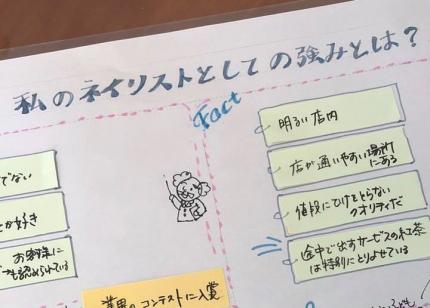 私のネイリストとしての強みとは?
Fact
明るい店内
店が通いやすい場所
にある
値段にひけをとらない
クオリティだ
途中で出すサービスの紅茶
は特別にとりよせている
でない
か好き
お客様に
も認められている
コンテストに入賞